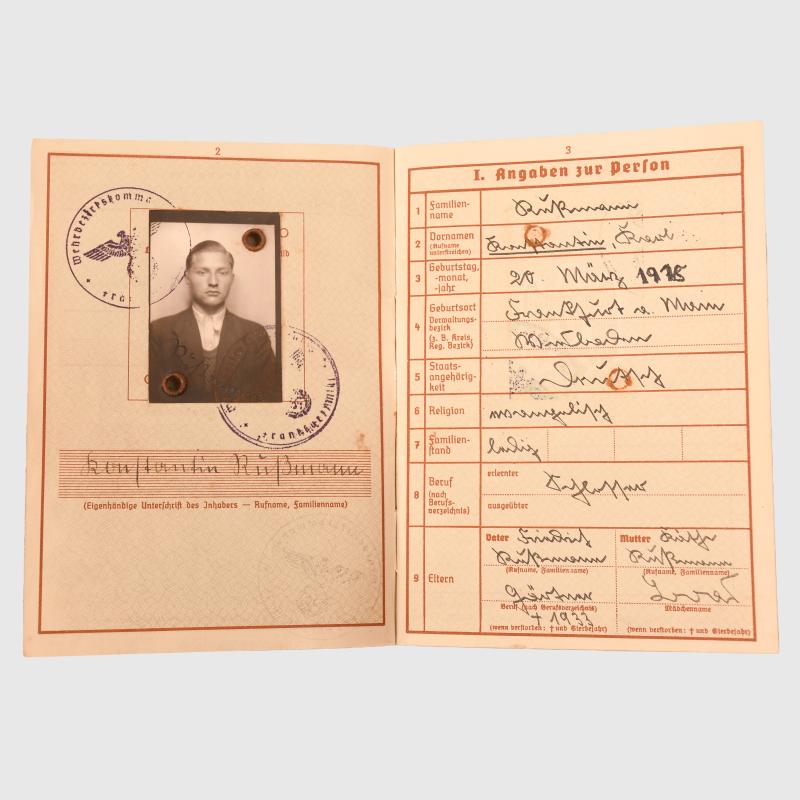 2
Wehrbezirkskomma
Fra
Frankfurt
Konstantin Rußmann
(Eigenhändige Unterschrift des Inhabers — Rufname, Familienname)
3
I. Angaben zur Person
1 Familien-
name
Rußmann
2 Vornamen
(Rufname
unterstreichen)
Konstantin, Karl
3 Geburtstag,
-monat,
-jahr
20. März
4 Geburtsort
Verwaltungs-
bezirk
(z. B. Kreis,
Reg. Bezirk)
Frankfurt a. Main
Wiesbaden
5 Staats-
angehörig-
keit
Deutsch
6 Religion
evangelisch
7 Familien-
stand
ledig
8 Beruf
(nach
Berufs-
verzeichnis)
erlernter
Schlosser
ausgeübter
9 Eltern
Vater Friedrich
Rußmann
(Rufname, Familienname)
Gärtner
Beruf (nach Berufsverzeichnis)
† 1933
(wenn verstorben: † und Sterbejahr)
Mutter Käthe
Rußmann
(Rufname, Familienname)
Mädchenname
(wenn verstorben: † und Sterbejahr)